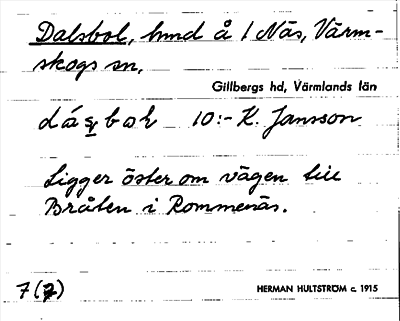 Dalsbol, hmd å 1 Näs, Värm-
skogs sn,
Gillbergs hd, Värmlands län
10:- K. Jansson
Ligger öster om vägen till
Bråten i Rommenäs.
7(7)
HERMAN HULTSTRÖM c. 1915